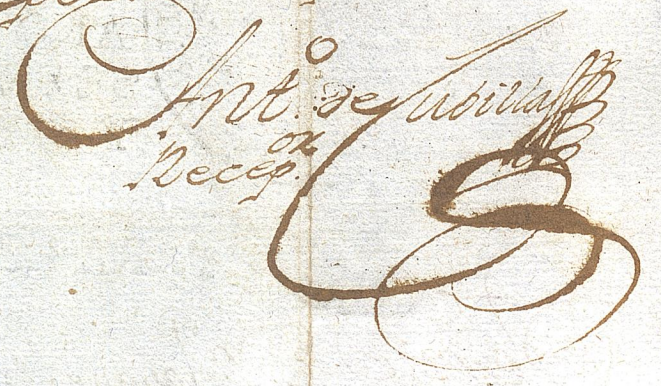 Ant.º de Cubillas
Recep.or